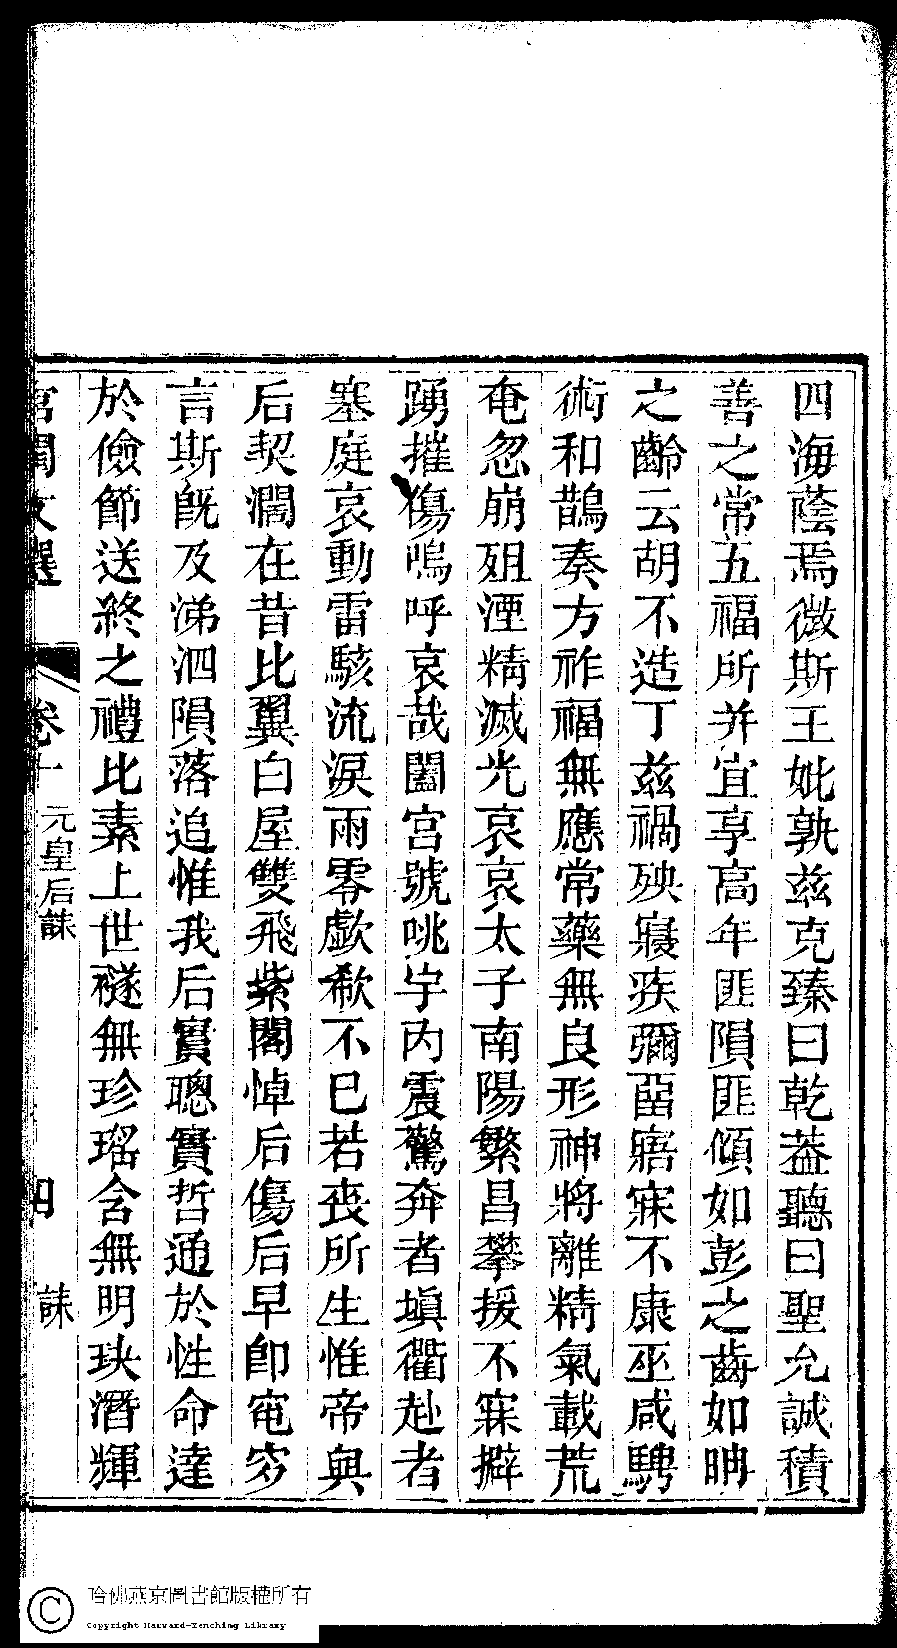 四海蔭焉微斯王妣孰兹克臻曰乾葢聽曰聖允誠積
善之常五福所并宜享高年匪隕匪傾如彭之齒如聃
之齡云胡不造丁兹禍殃寢疾彌留寤寐不康巫咸騁
術和鵲奏方祚福無應常藥無良形神將離精氣載荒
奄忽崩殂湮精滅光哀哀太子南陽繁昌攀援不寐擗
踴摧傷嗚呼哀哉闔宮號咷宇内震驚奔者塡衢赴者
塞庭哀動雷駭流淚雨零歔欷不巳若喪所生惟帝與
后契濶在昔比翼白屋雙飛紫閣悼后傷后早卽窀穸
言斯旣及涕泗隕落追惟我后實聰實哲通於性命達
於儉節送終之禮比素上世襚無珍瑤含無明玦潛輝
宮閨文選 卷十 元皇后誄 四 誄
哈佛燕京圖書館版權所有
Copyright Harvard-Yenching Library